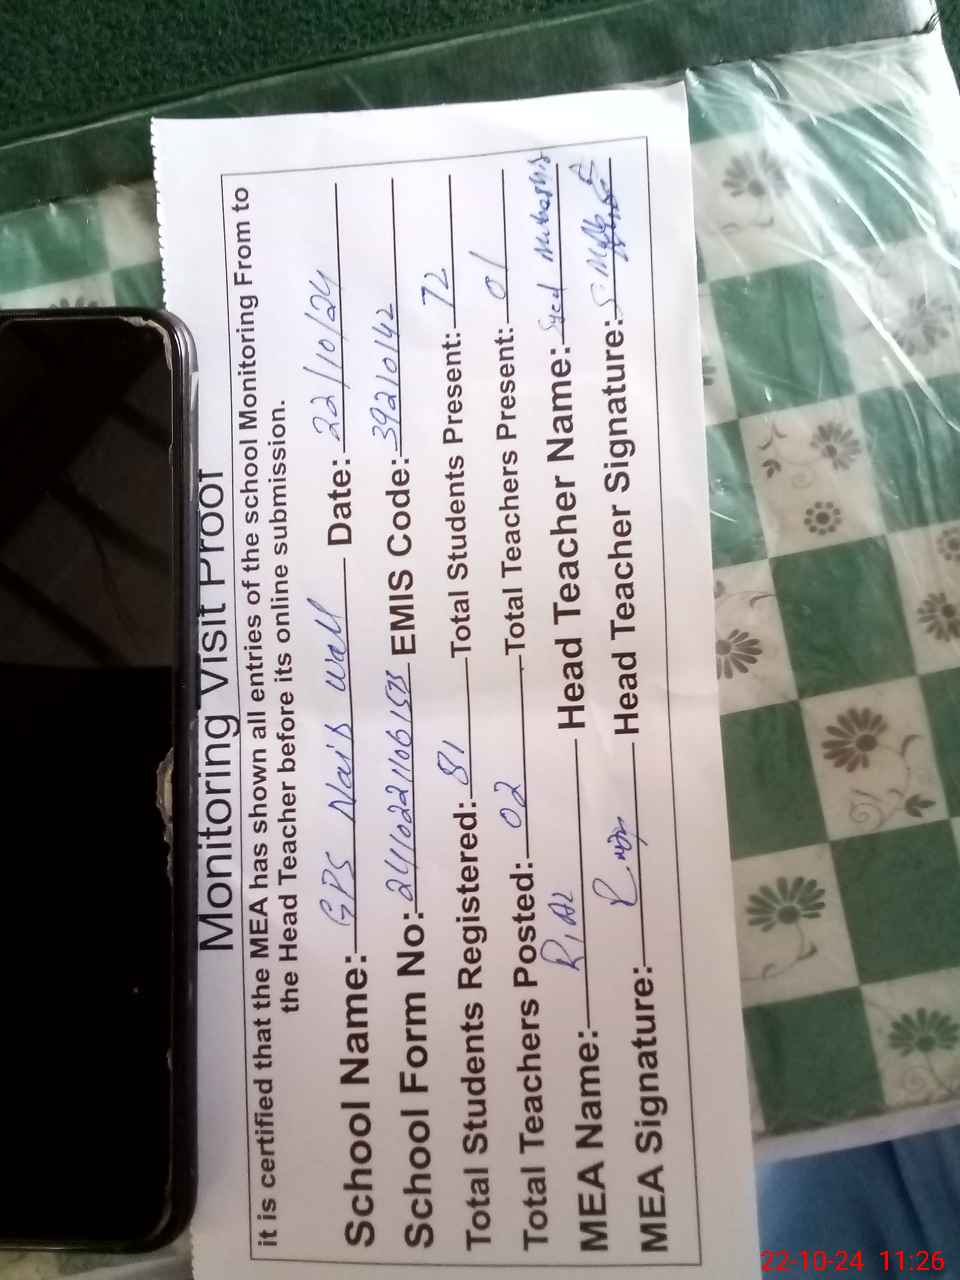 Monitoring Visit Proof
it is certified that the MEA has shown all entries of the school Monitoring From to
the Head Teacher before its online submission.
School Name: GPS Naib Wali Date: 22/10/24
School Form No: EMIS Code: 39210142
Total Students Registered: 81 Total Students Present: 72
Total Teachers Posted: 02 Total Teachers Present: 01
MEA Name: Riaz Head Teacher Name: Syed Mubashir
MEA Signature: Head Teacher Signature:
22-10-24 11:26